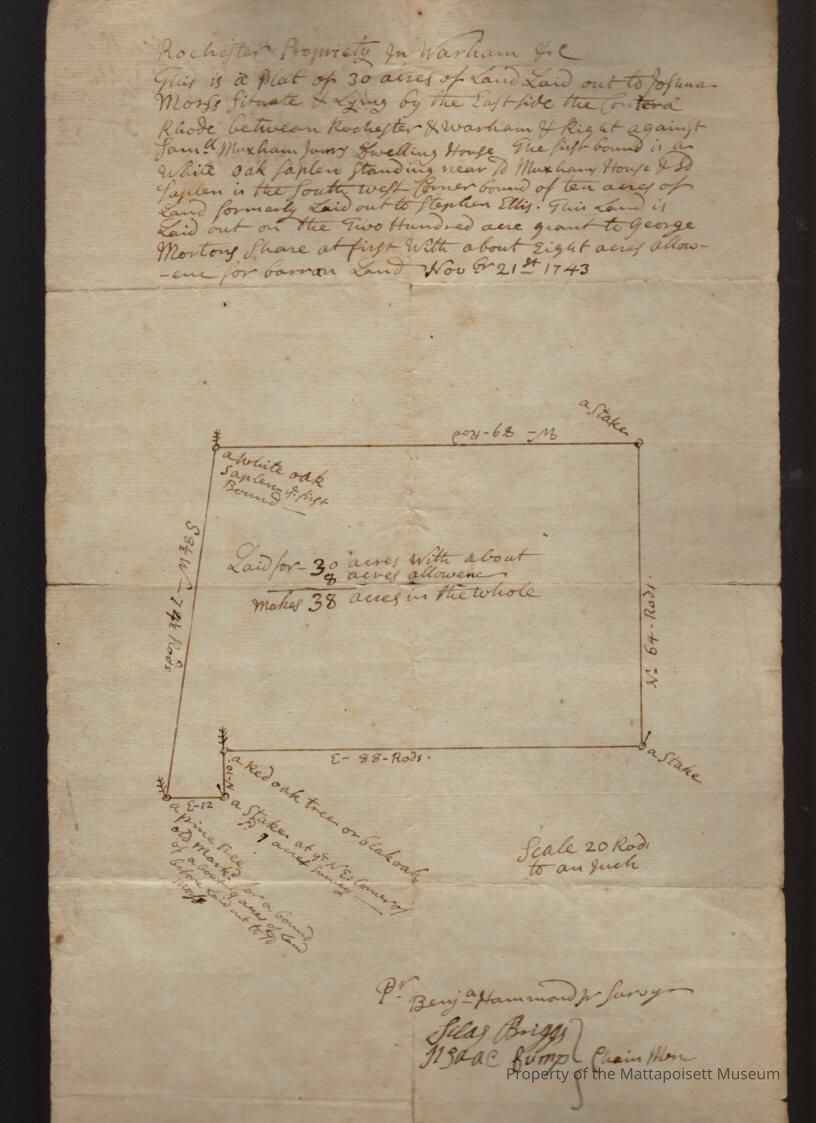 Rochester Propriety In Warham &c
This is a Plat of 30 acres of Land Laid out to Joshua
Morss Situate & Lying by the East side the
Rhode between Rochester & Warham & Right against
Samll Muxham Junrs Dwelling House The first bound is a
White oak Saplen Standing near sd Muxhams House & sd
Saplen is the South West Corner bound of ten acres of
Land formerly Laid out to Stephen Ellis. This Land is
Laid out on the Two Hundred acre grant to George
Mortons Share at first With about Eight acres allow-
-enc for barran Land Novbr 21st 1743
a Stake
W- 89-Rod
a White oak
Saplen ye first
Bound
S 8½ W - 74½ Rods
Laid for - 30 acres With about
8 acres allowenc
makes 38 acres in the whole
No 64-Rods.
E- 88-Rods.
a Stake
N-10
E-12
a Red oak tree or blak oak
a Stake at ye N:E: Corner of
sd 9 acres Survey
a pine tree
old markd for a bound
of about 9 acres of Land
before Laid out to sd
Morss
Scale 20 Rods
to an Inch
Pr
Benja Hammond Jr Survyr
Silas Briggs
Isaac Bump } Chain Men
Property of the Mattapoisett Museum